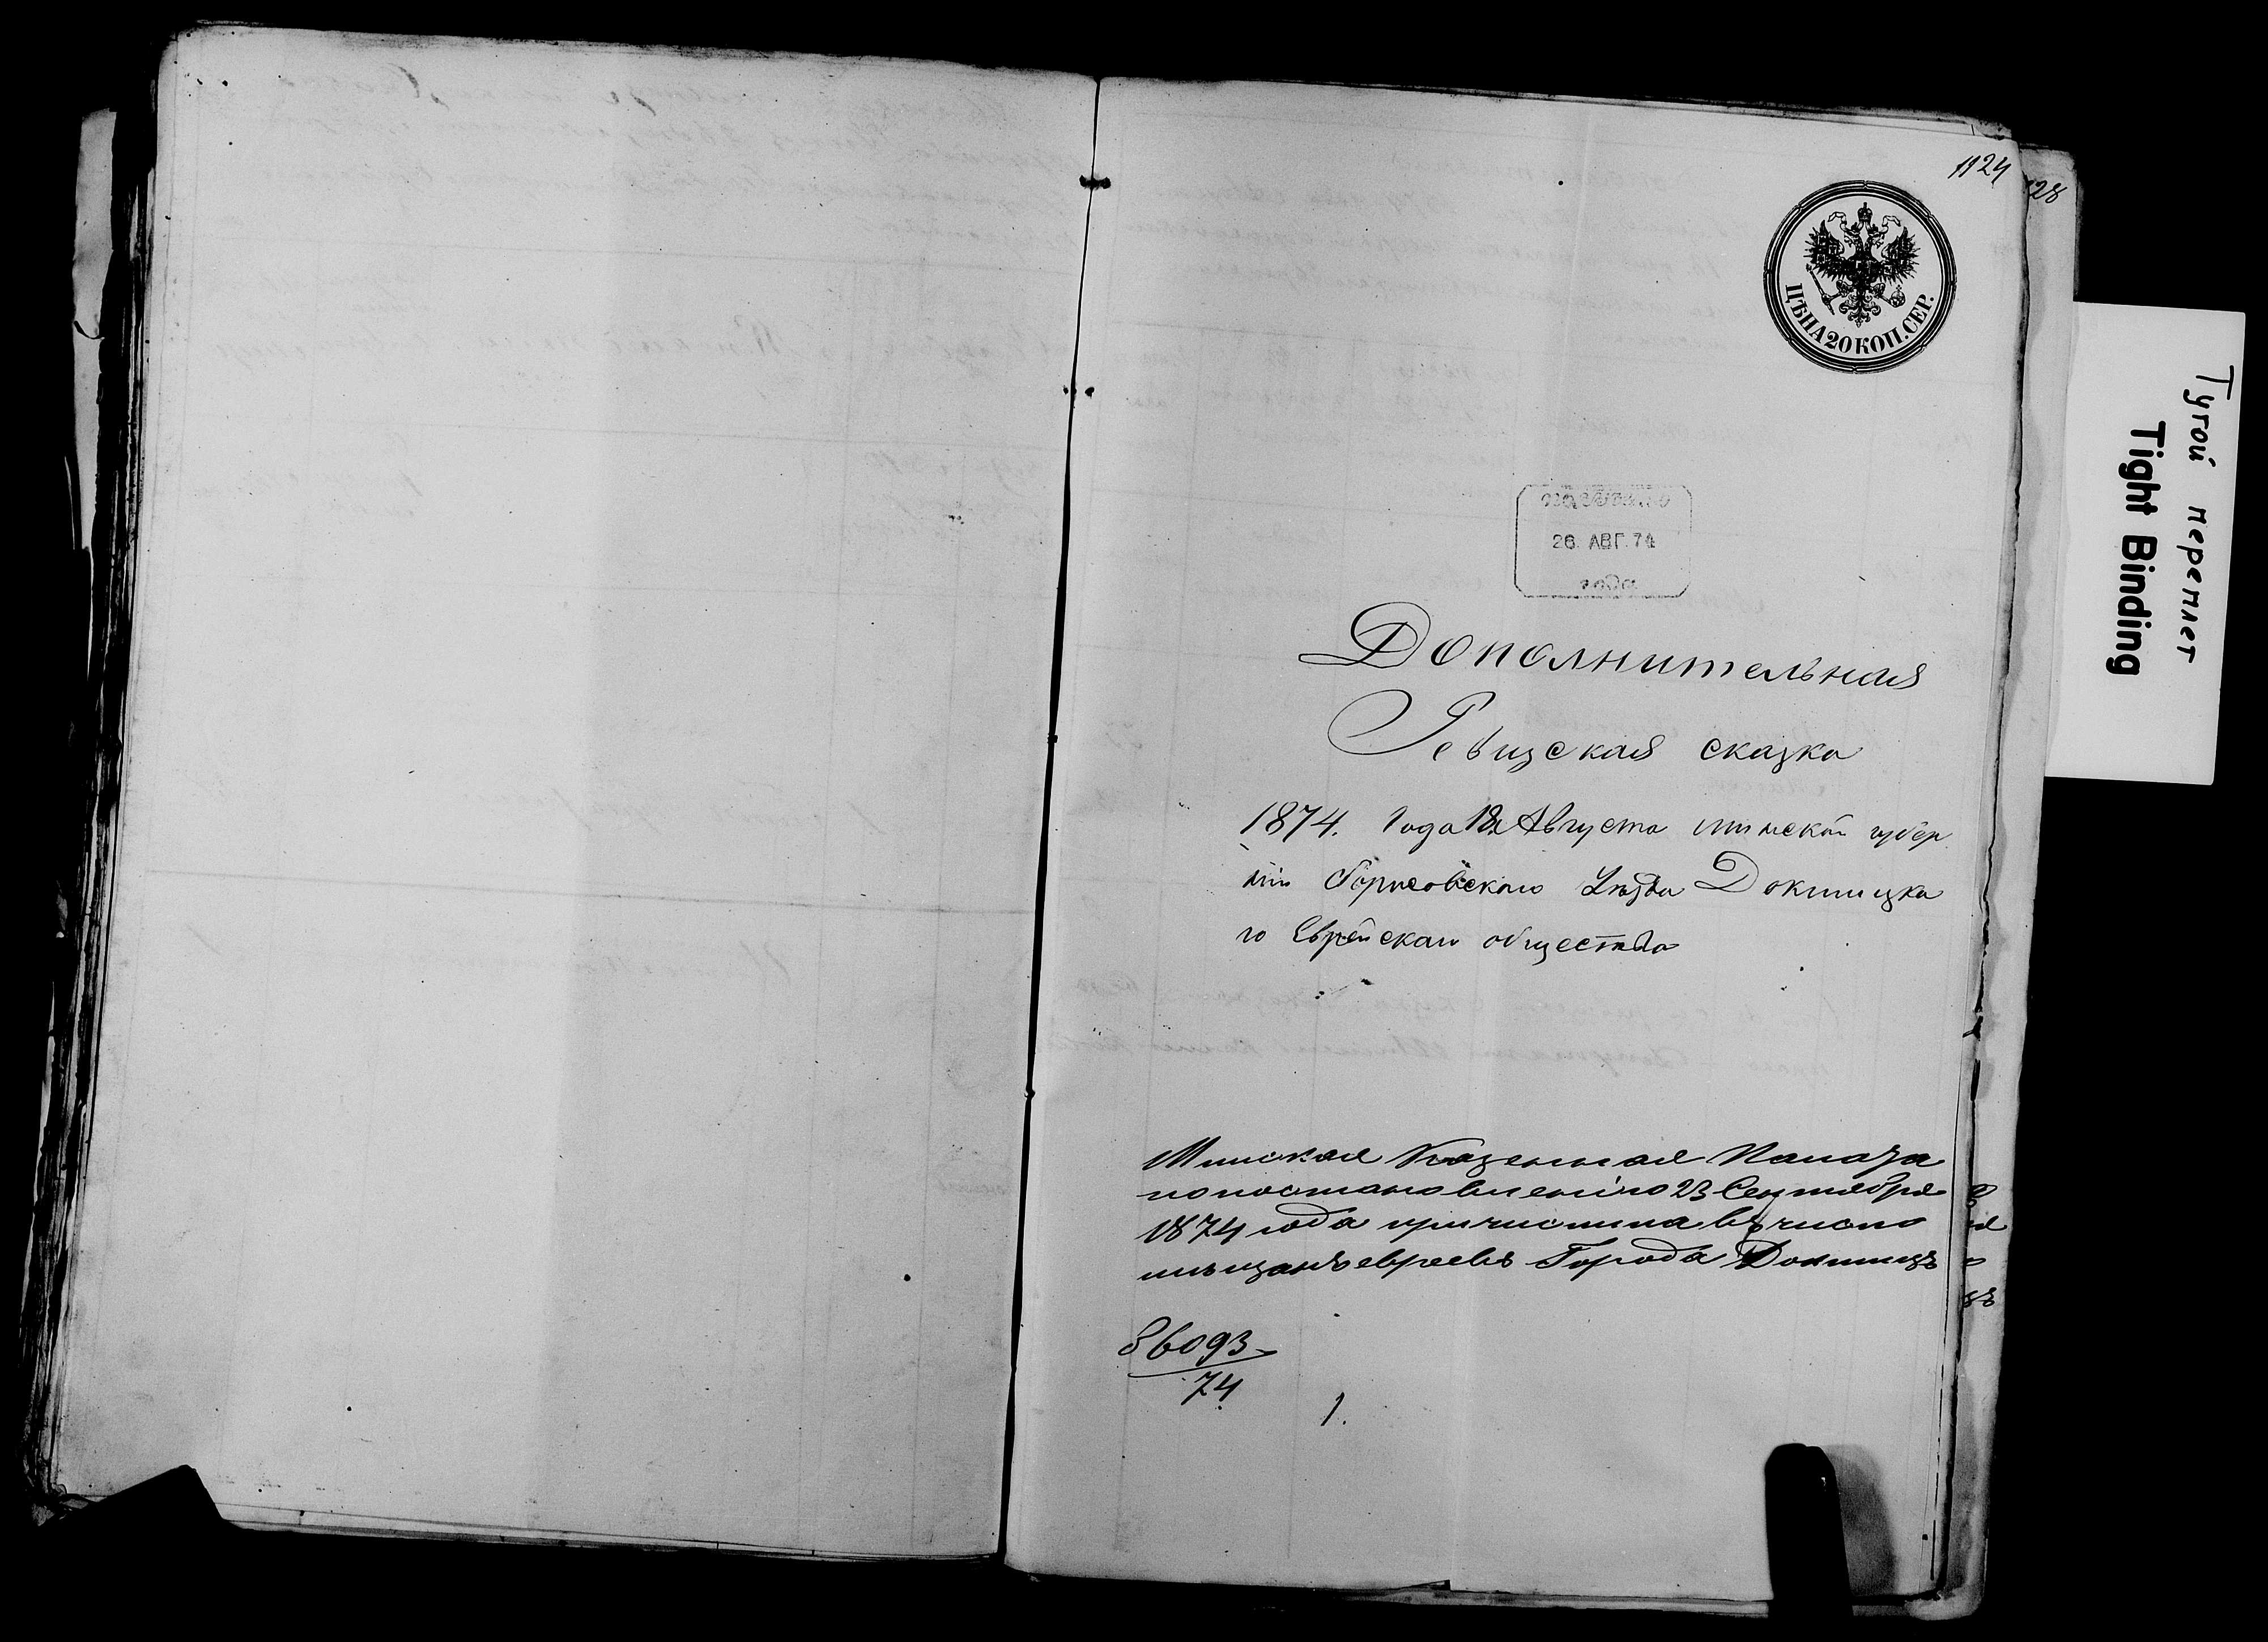 1124
28
ЦѢНА 20 КОП. СЕР.
Тугой переплет
Tight Binding
26. АВГ. 74
Дополнительная
Ревизская сказка
1874. Года 18 Августа Минской губер
ніи Борисовскаго Уѣзда Докшицка
го Еврейскаго общества
Минская Казенная Палата
по постановленію 23 Сентября
1874 года причислила въ число
мѣщанъ евреевъ Города Докшицъ
36093
74
1.